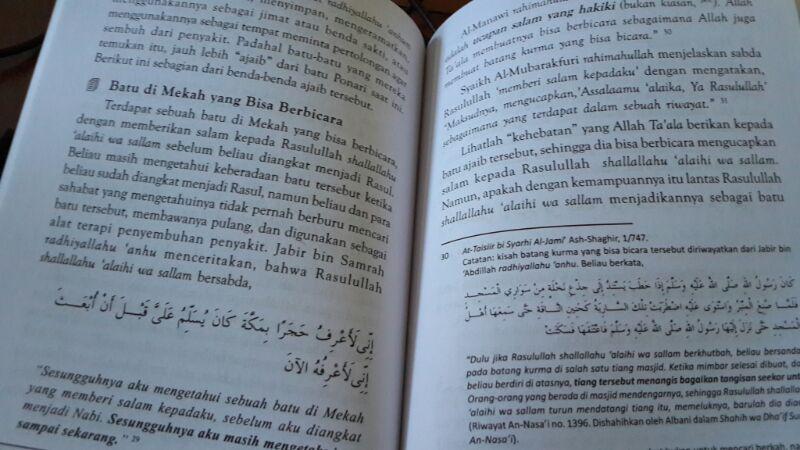 menyimpan, mengeramatkan,
menggunakannya sebagai jimat atau benda sakti, atau
menggunakannya sebagai tempat meminta pertolongan agar
sembuh dari penyakit. Padahal batu-batu yang mereka
temukan itu, jauh lebih "ajaib" dari batu Ponari saat ini.
Berikut ini sebagian dari benda-benda ajaib tersebut.
Batu di Mekah yang Bisa Berbicara
Terdapat sebuah batu di Mekah yang bisa berbicara,
dengan memberikan salam kepada Rasulullah shallallahu
'alaihi wa sallam sebelum beliau diangkat menjadi Rasul.
Beliau masih mengetahui keberadaan batu tersebut ketika
beliau sudah diangkat menjadi Rasul, namun beliau dan para
sahabat yang mengetahuinya tidak pernah berburu mencari
batu tersebut, membawanya pulang, dan digunakan sebagai
alat terapi penyembuhan penyakit. Jabir bin Samrah
radhiyallahu 'anhu menceritakan, bahwa Rasulullah
shallallahu 'alaihi wa sallam bersabda,
إِنِّي لَأَعْرِفُ حَجَرًا بِمَكَّةَ كَانَ يُسَلِّمُ عَلَيَّ قَبْلَ أَنْ أُبْعَثَ
إِنِّي لَأَعْرِفُهُ الْآنَ
"Sesungguhnya aku mengetahui sebuah batu di Mekah
yang memberi salam kepadaku, sebelum aku diangkat
menjadi Nabi. Sesungguhnya aku masih mengetahui
sampai sekarang." 29
Al-Manawi rahimahullah
adalah ucapan salam yang hakiki (bukan kiasan,
Ta'ala membuatnya bisa berbicara sebagaimana Allah juga
membuat batang kurma yang bisa bicara." 30
Syaikh Al-Mubarakfuri rahimahullah menjelaskan sabda
Rasulullah 'memberi salam kepadaku' dengan mengatakan,
"Maksudnya, mengucapkan,'Assalaamu 'alaika, Ya Rasulullah'
sebagaimana yang terdapat dalam sebuah riwayat." 31
Lihatlah "kehebatan" yang Allah Ta'ala berikan kepada
batu ajaib tersebut, sehingga dia bisa berbicara mengucapkan
salam kepada Rasulullah shallallahu 'alaihi wa sallam.
Namun, apakah dengan kemampuannya itu lantas Rasulullah
shallallahu 'alaihi wa sallam menjadikannya sebagai batu
30 At-Taisiir bi Syarhi Al-Jami' Ash-Shaghir, 1/747.
Catatan: kisah batang kurma yang bisa bicara tersebut diriwayatkan dari Jabir bin
'Abdillah radhiyallahu 'anhu. Beliau berkata,
كَانَ رَسُولُ اللهِ صَلَّى اللهُ عَلَيْهِ وَسَلَّمَ إِذَا خَطَبَ يَسْتَنِدُ إِلَى جِذْعِ نَخْلَةٍ مِنْ سَوَارِي الْمَسْجِدِ
فَلَمَّا صُنِعَ الْمِنْبَرُ وَاسْتَوَى عَلَيْهِ اضْطَرَبَتْ تِلْكَ السَّارِيَةُ كَحَنِينِ النَّاقَةِ حَتَّى سَمِعَهَا أَهْلُ
الْمَسْجِدِ حَتَّى نَزَلَ إِلَيْهَا رَسُولُ اللهِ صَلَّى اللهُ عَلَيْهِ وَسَلَّمَ فَاعْتَنَقَهَا فَسَكَتَتْ
"Dulu jika Rasulullah shallallahu 'alaihi wa sallam berkhutbah, beliau
pada batang kurma di salah satu tiang masjid. Ketika mimbar selesai dibuat,
beliau berdiri di atasnya, tiang tersebut menangis bagaikan tangisan seekor
Orang-orang yang berada di masjid mendengarnya, sehingga Rasulullah
'alaihi wa sallam turun mendatangi tiang itu, memeluknya, barulah dia
(Riwayat An-Nasa'i no. 1396. Dishahihkan oleh Albani dalam Shahih wa Dha'if
An-Nasa'i).